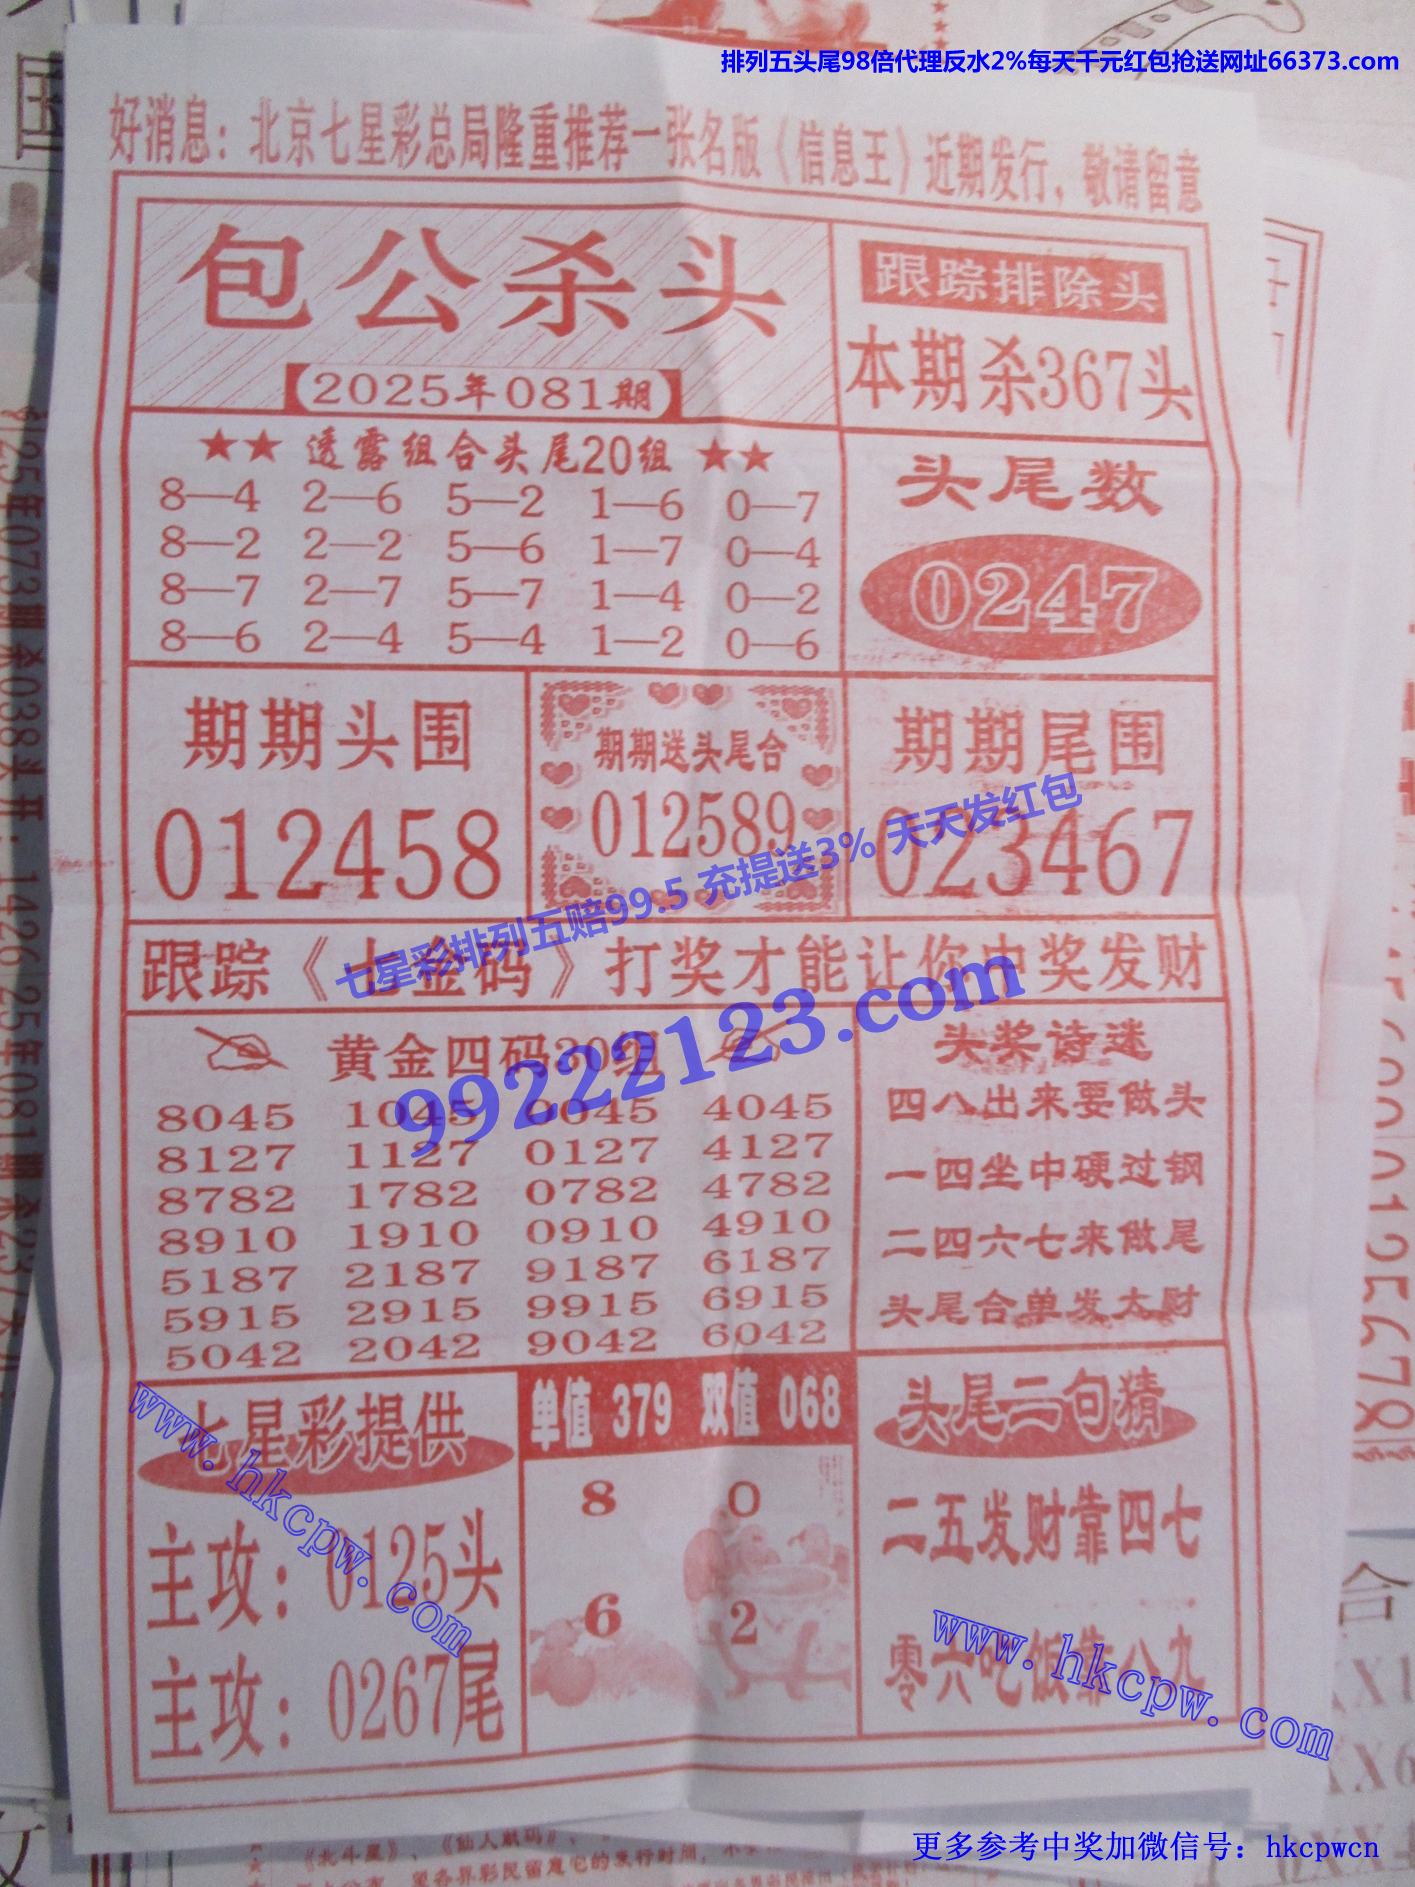 排列五头尾98倍代理反水2%每天千元红包抢送网址66373.com
好消息：北京七星彩总局隆重推荐一张名版《信息王》近期发行，敬请留意
包公杀头
2025年081期
跟踪排除头
本期杀367头
★★ 透露组合头尾20组 ★★
8—4 2—6 5—2 1—6 0—7
8—2 2—2 5—6 1—7 0—4
8—7 2—7 5—7 1—4 0—2
8—6 2—4 5—4 1—2 0—6
头尾数
0247
期期头围
012458
期期送头尾合
012589
期期尾围
023467
七星彩排列五赔99.5 充提送3% 天天发红包
跟踪《七金码》打奖才能让你中奖发财
99222123.com
黄金四码30组
8045 1045 0045 4045
8127 1127 0127 4127
8782 1782 0782 4782
8910 1910 0910 4910
5187 2187 9187 6187
5915 2915 9915 6915
5042 2042 9042 6042
头奖诗迷
四八出来要做头
一四坐中硬过钢
二四六七来做尾
头尾合单发大财
七星彩提供
www.hkcpw.com
主攻：0125头
主攻：0267尾
单值 379 双值 068
8 0
6 2
头尾二句猜
二五发财靠四七
零六吃饭靠八九
www.hkcpw.com
更多参考中奖加微信号：hkcpwcn